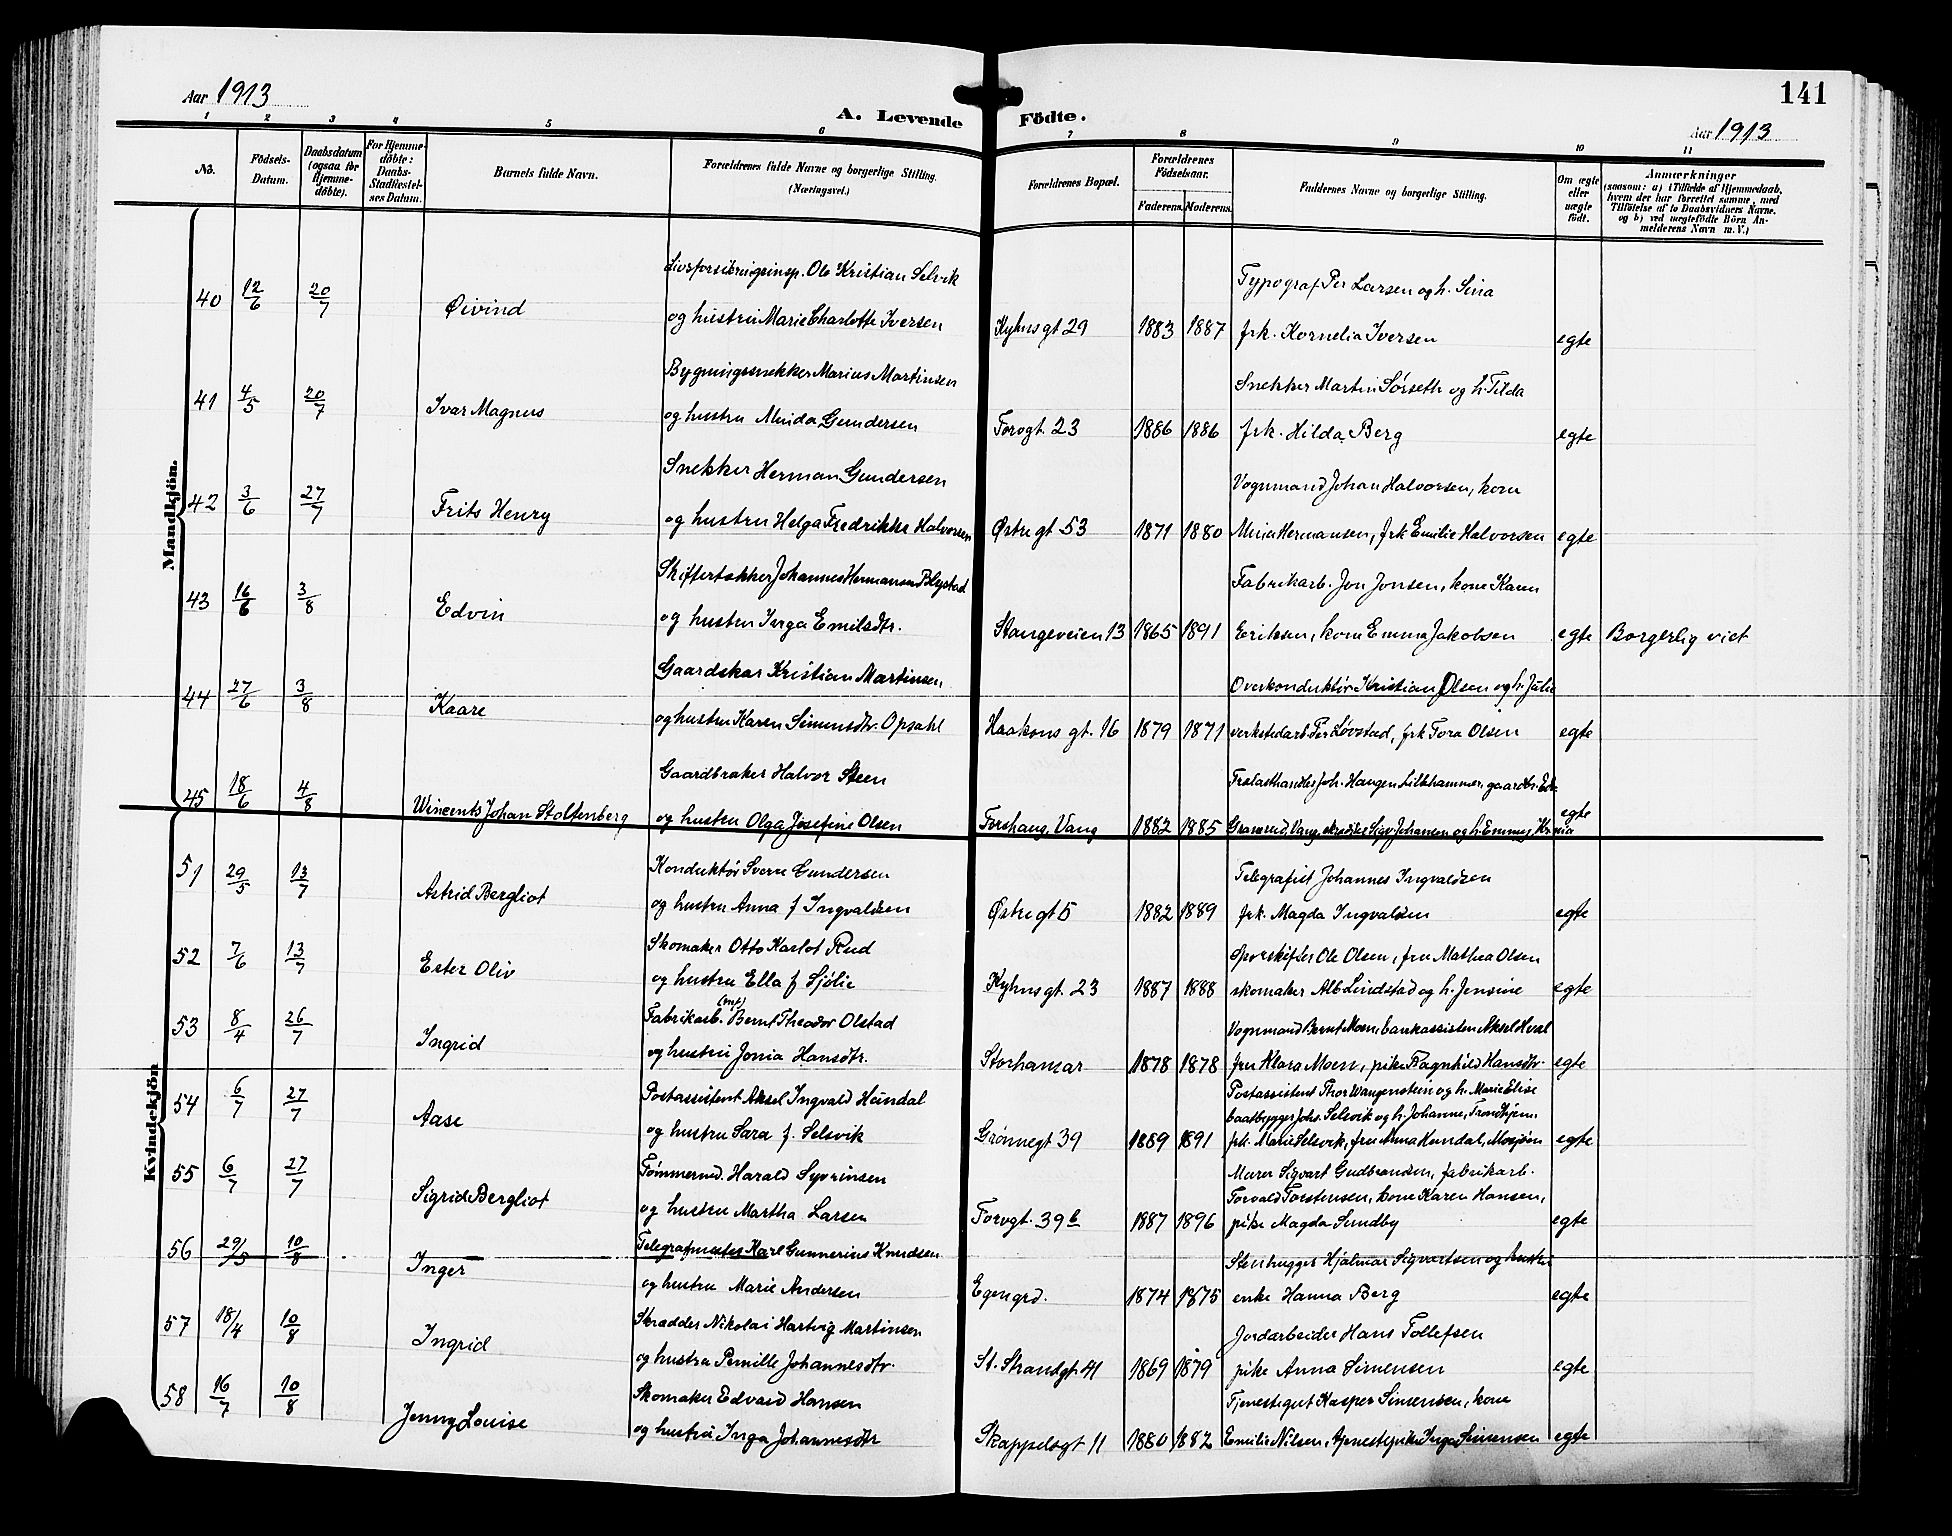 Aar 1913
A. Levende Födte.
141
Aar 1913
1 2 3 4 5 6 7 8 9 10 11
No. Födsels-Datum. Daabsdatum (ogsaa for Hjemme-döbte). For Hjemme-döbte: Daabs-Stadfæstel-ses Datum. Barnets fulde Navn. Forældrenes fulde Navne og borgerlige Stilling. (Næringsvei.) Forældrenes Bopæl. Forældrenes Födselsaar. Faderens. Moderens. Faddernes Navne og borgerlige Stilling. Om ægte eller uægte födt. Anmærkninger (saasom: a) i Tilfælde af Hjemmedaab, hvem der har forrettet samme, med Tilföielse af to Daabsvidners Navne. og b) ved uægtefödte Börn An-melderens Navn m. V.)
Mandkjön.
Livsforsikringsinsp. Ole Kristian Selvik Typograf Per Larsen og h. Sina
40 12/6 20/7 Øivind og hustru Marie Charlotte Iversen Kyhns gt 29 1883 1887 frk. Kornelia Iversen egte
Bygningssnekker Marius Martinsen Snekker Martin Sørseth og h. Tilda
41 4/5 20/7 Ivar Magnus og hustru Minda Gundersen Torvgt. 23 1886 1886 frk. Hilda Berg egte
Snekker Herman Gundersen Vognmand Johan Halvorsen, kone
42 3/6 27/7 Frits Henry og hustru Helga Fredrikke Halvorsen Østre gt 53 1871 1880 Hermansen, frk Emilie Halvorsen egte
Skiftertækker Johannes Hermansen Blystad Fabrikarb. Jon Jonsen, kone Karen
43 16/6 3/8 Edvin og hustru Inga Emilsdtr. Stangeveien 13 1865 1891 Eriksen, kone Emma Jakobsen egte Borgerlig viet
Gaardskar Kristian Martinsen Overkonduktør Kristian Olsen og h. Julie
44 27/6 3/8 Kaare og hustru Karen Simensdtr. Opsahl Haakons gt. 16 1879 1871 verkstedarb. Per Løvstad, frk Tora Olsen egte
Gaardbruker Halvor Steen Trelasthandler Joh. Haugen Lillehammer, gaardbr.
45 18/6 4/8 Wincents Johan Stoltenberg og hustru Olga Josefine Olsen Furuhaug, Vang 1882 1885 Vang, Sigv. Johansen og h. Emma, Kr.nia egte
Kvindekjön
Konduktør Sverre Gundersen Telegrafist Johannes Ingvaldsen
51 29/5 13/7 Astrid Bergliot og hustru Anna f Ingvaldsen Østre gt 5 1882 1889 frk. Magda Ingvaldsen egte
Skomaker Otto Karlot Rud Sporskifter Ole Olsen, fru Mathea Olsen
52 7/6 13/7 Ester Oliv og hustru Ella f Sjølie Kyhns gt. 23 1887 1888 skomaker Alb Lindstad og h. Jensine egte
Fabrikarb. Bernt Theodor Olstad Vognmand Bernt Moen, bankassistent Aksel Hval
53 8/4 26/7 Ingrid og hustru Jonia Hansdtr. Storhamar 1878 1878 fru Klara Moen, pike Ragnhild Hansdtr. egte
Postassistent Aksel Ingvald Heindal Postassistent Thor Wangenstein og h. Marie Elise
baatbygger Johs. Selsvik og h. Johanne, Trondhjem,
54 6/7 27/7 Aase og hustru Sara f. Selsvik Grønnegt 39 1889 1891 frk. Marie Selsvik, fru Anna Mosjøen egte
Tømmermd. Harald Syvrinsen Murer Sigvart Gudbrandsen, fabrikarb.
Torvald Torstensen, kone Karen Hansen,
55 6/7 27/7 Sigrid Bergliot og hustru Martha Larsen Torvgt. 39 b 1887 1896 pike Magda Sundby egte
Telegrafmester Karl Gunnerius Knudsen Stenhugger Hjalmar Sigvartsen og hustru
56 29/3 10/8 Inger og hustru Marie Andersen Egengrd. 1874 1875 enke Hanna Berg egte
Skrædder Nikolai Hartvig Martinsen Jordarbeider Hans Tollefsen
57 18/4 10/8 Ingrid og hustru Pernille Johannesdtr. St. Strandgt 41 1869 1879 pike Anna Simensen egte
Skomaker Edvard Hansen Tjenestegut Kasper Simensen, kone
58 16/7 10/8 Jenny Louise og hustru Inga Johannesdtr Skappelsgt 11 1880 1882 Emilie Nilsen, tjenestepike Inga Simensen egte